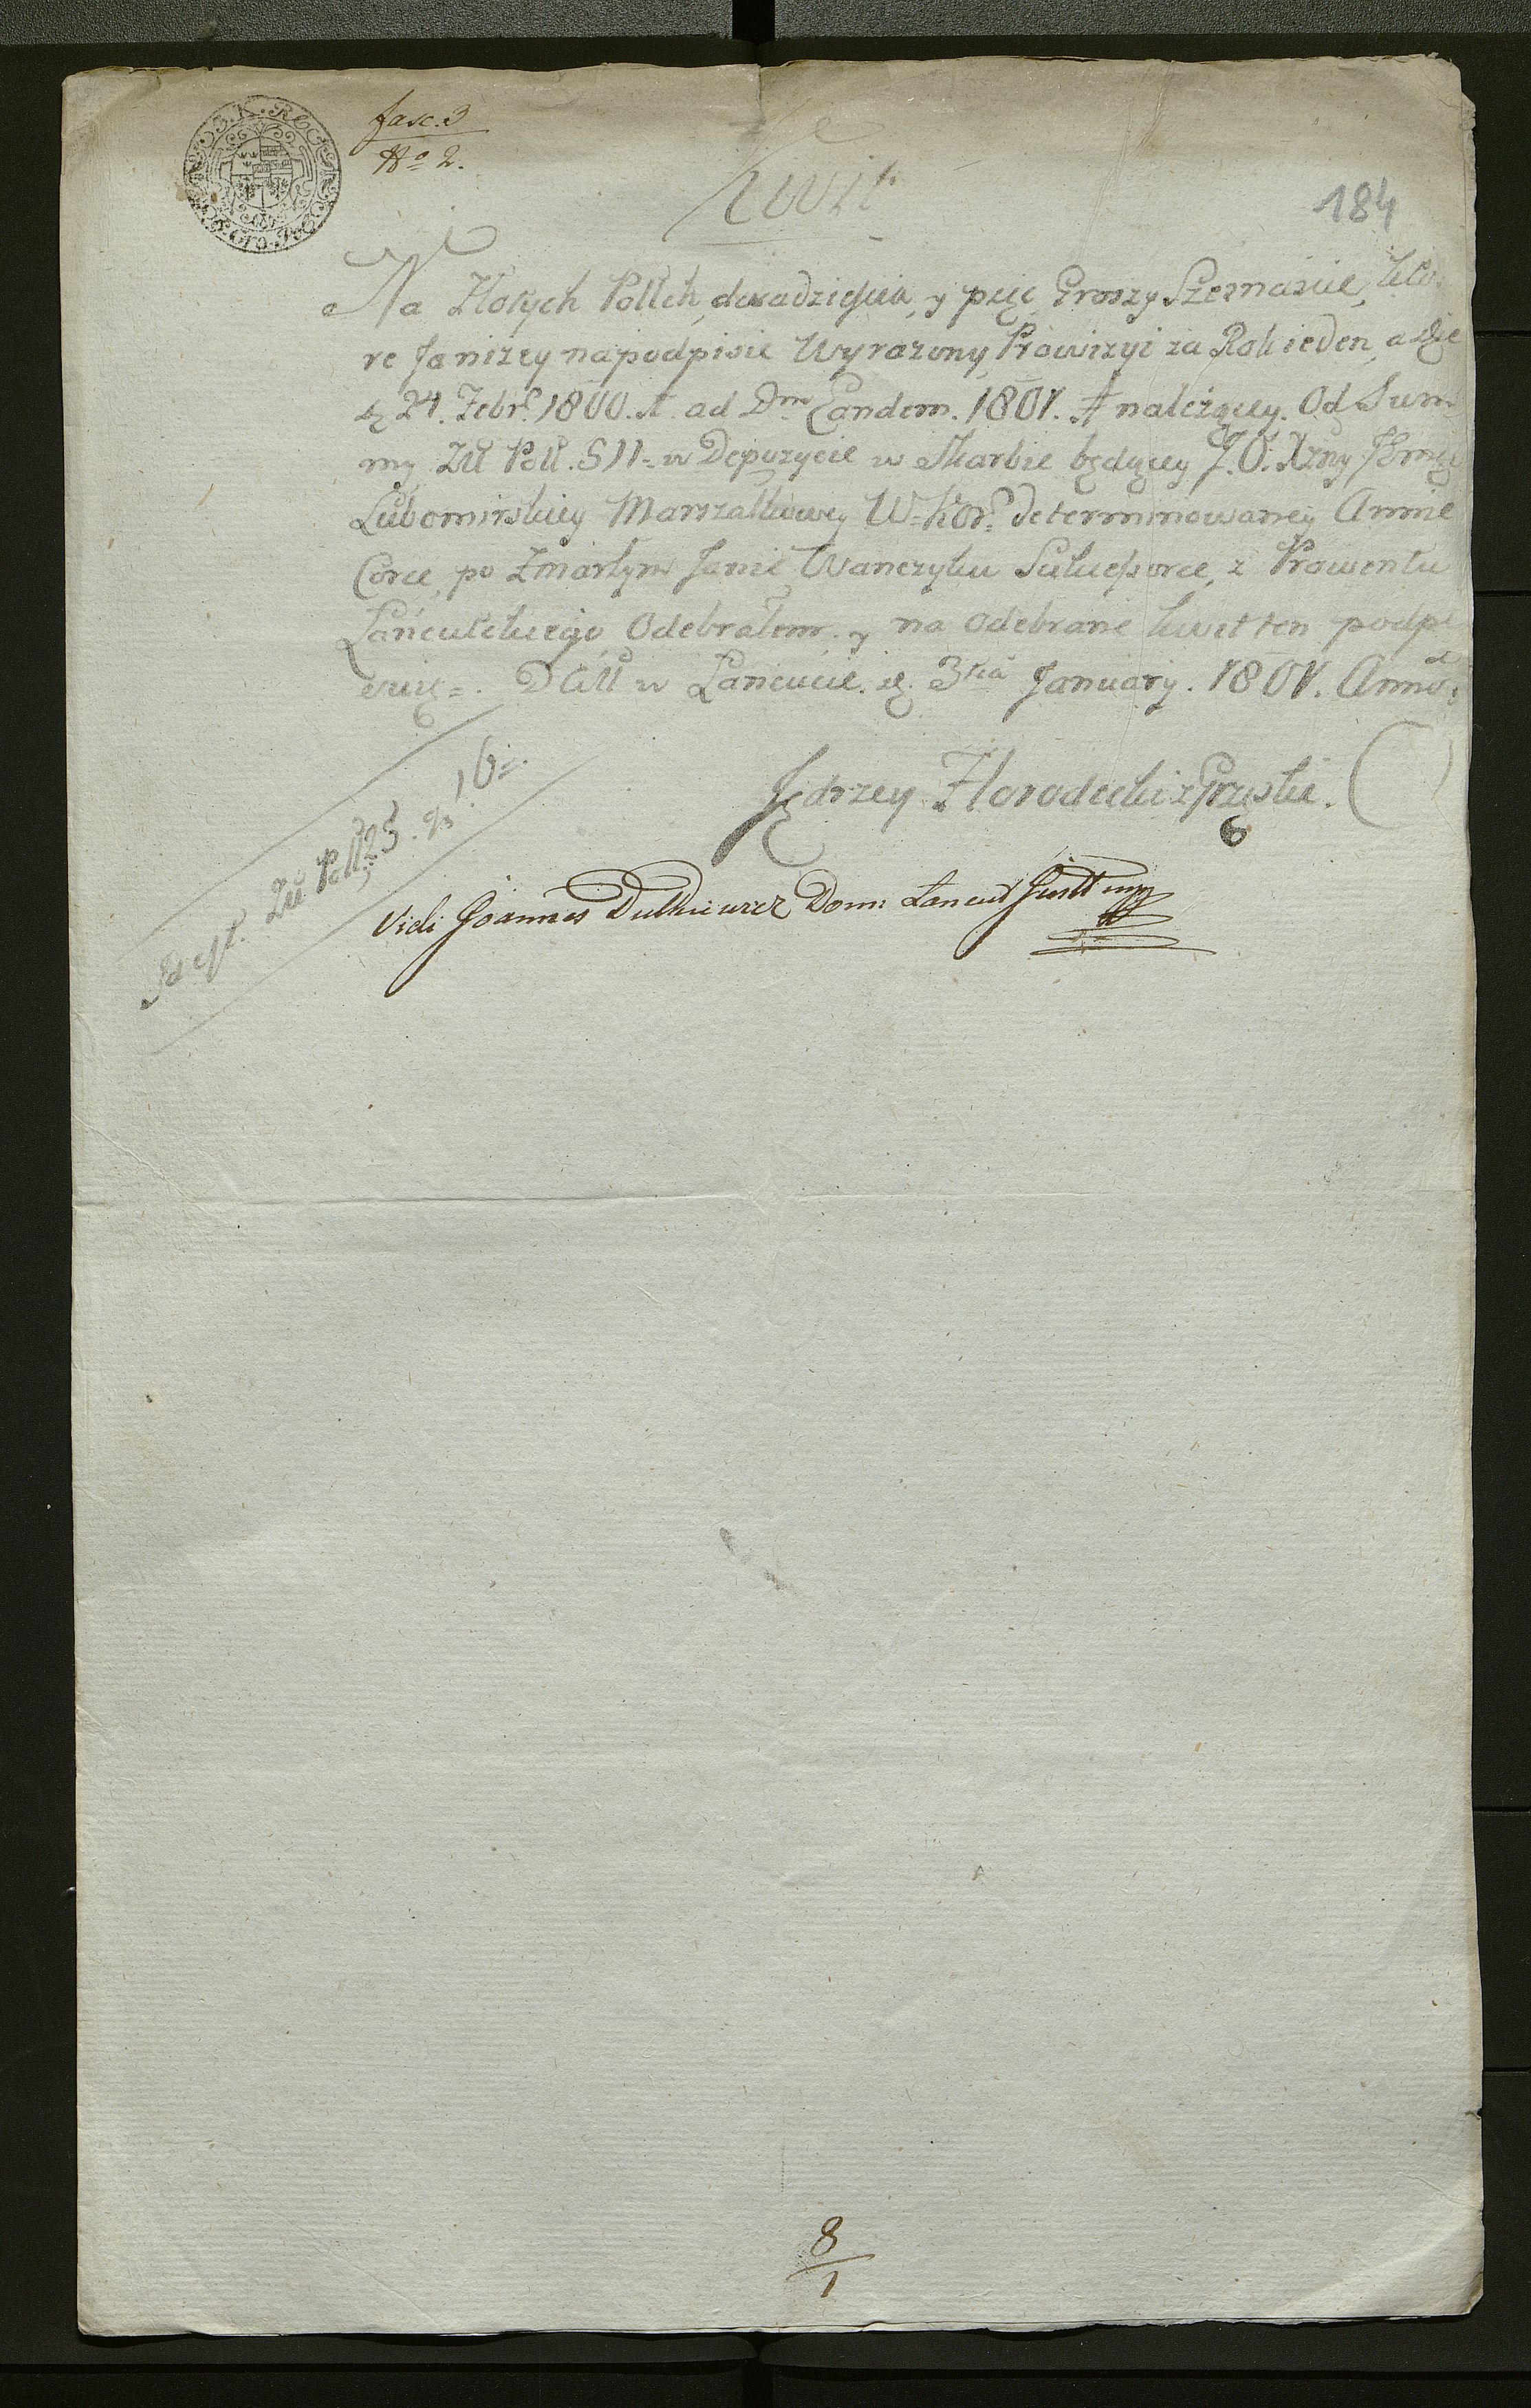 fasc. 3
No 2.
184
Kwit
Na Złotych Pollch, dwadziescia, y pięć Groszy Szesnaście, kto-
re Ja niżey na podpisie Wyrazony, Prowizyi za Rok ieden, a die
24. Febr. 1800. A. ad Dm Eandem. 1801. A należącey. Od Sum-
my Zll Poll. 511 = w Depozycie w Skarbie będącey J. O. Xzny Jmci
Lubomirskiey Marszałkowey W. Kor. determinowaney Annie
Corce, po Zmarłym Janie Wanczyku Sukcessorce, z Prowentu
Łańcutskiego, Odebrałem, y na odebrane kwit ten podpi-
suię =. Datt w Łancucie. d. 3tia January. 1801. Anno.
Jędrzey Horodecki z Grząski.
Id est. Zll Poll. 25. g. 16 =.
Vidi Joannes Dulkiewicz Dom: Lancut Justt mpp
8
1